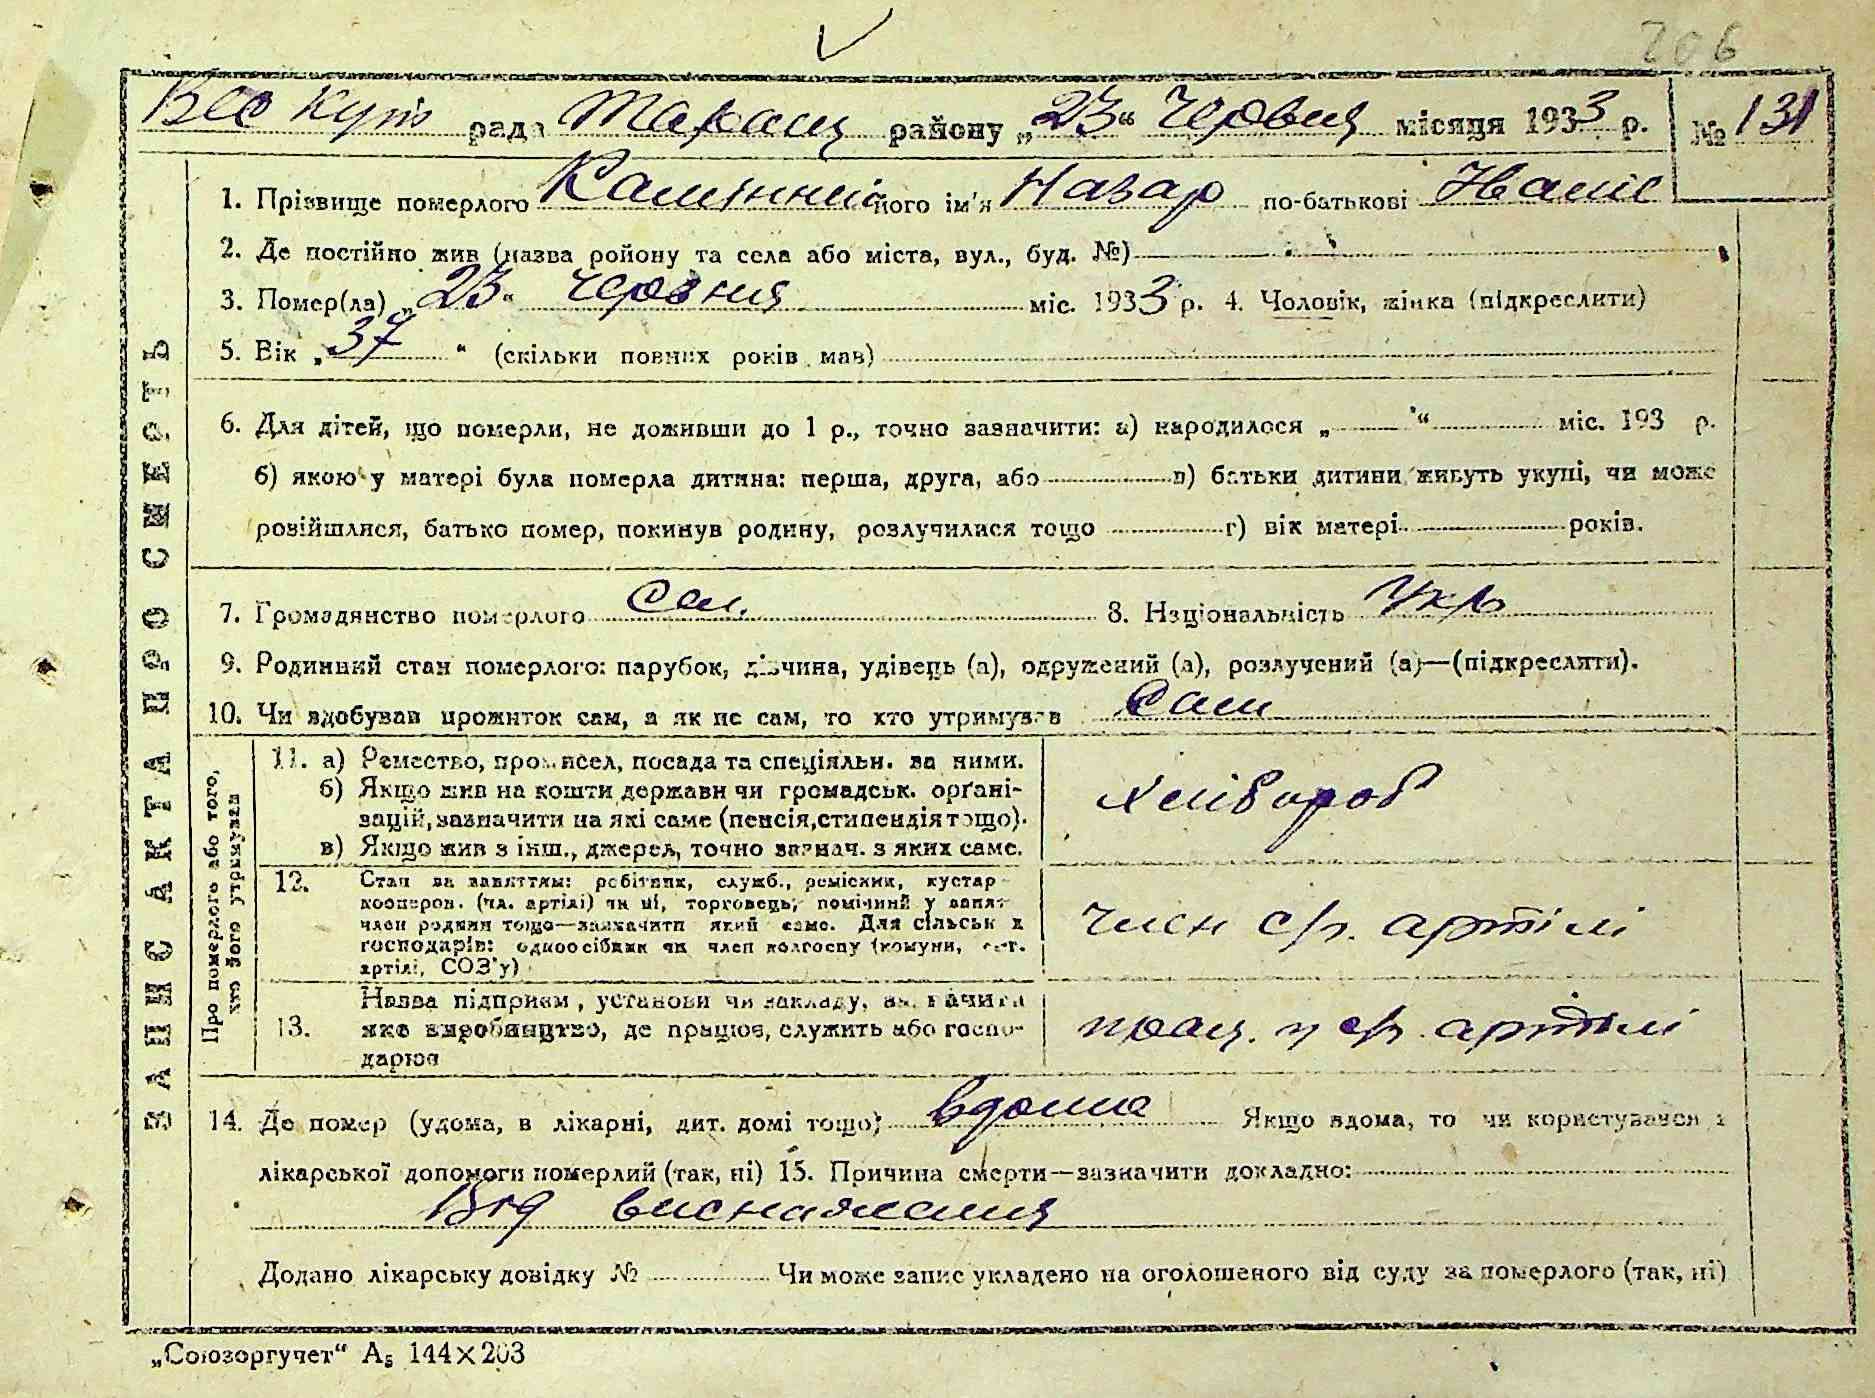 206
Вес Кутр рада Таращ району „23“ Червня місяця 1933 р. № 131
1. Прізвище померлого Камінний його ім'я Назар по-батькові Іваніс
2. Де постійно жив (назва ройону та села або міста, вул., буд. №)
3. Помер(ла) „23“ червня міс. 1933 р. 4. Чоловік, жінка (підкреслити)
5. Вік „37“ (скільки повних років мав)
6. Для дітей, що померли, не доживши до 1 р., точно зазначити: а) народилося „ “ міс. 193 р.
б) якою у матері була померла дитина: перша, друга, або в) батьки дитини живуть укупі, чи може
розійшлися, батько помер, покинув родину, розлучилися тощо г) вік матері років.
7. Громадянство померлого Сел. 8. Національність Укр
9. Родинний стан померлого: парубок, дівчина, удівець (а), одружений (а), розлучений (а)—(підкресляти).
10. Чи здобував прожиток сам, а як не сам, то хто утримував Сам
ЗАПИС АКТА ПРО СМЕРТЬ
Про померлого або того, хто його утримував
11. а) Ремество, промисел, посада та спеціяльн. за ними.
б) Якщо жив на кошти держави чи громадськ. орґані-
зацій, зазначити на які саме (пенсія, стипендія тощо).
в) Якщо жив з інш., джерел, точно зазнач. з яких саме.
Хлівороб
12. Стан за заняттям: робітник, служб., ремісник, кустар
кооперов. (чл. артілі) чи ні, торговець, помічний у занят
член родини тощо—зазначити який саме. Для сільськ х
господарів: одноосібник чи член колгоспу (комуни, с.-г.
артілі, СОЗ'у)
член с/г. артілі
13. Назва підприєм , установи чи закладу, зазначити
яке виробництво, де працює, служить або госпо-
дарює
прац. у с/г. артілі
14. Де помер (удома, в лікарні, дит. домі тощо) вдома Якщо вдома, то чи користувався з
лікарської допомоги померлий (так, ні) 15. Причина смерти—зазначити докладно:
Від виснаження
Додано лікарську довідку № Чи може запис укладено на оголошеного від суду за померлого (так, ні)
„Союзоргучет“ А₅ 144×203